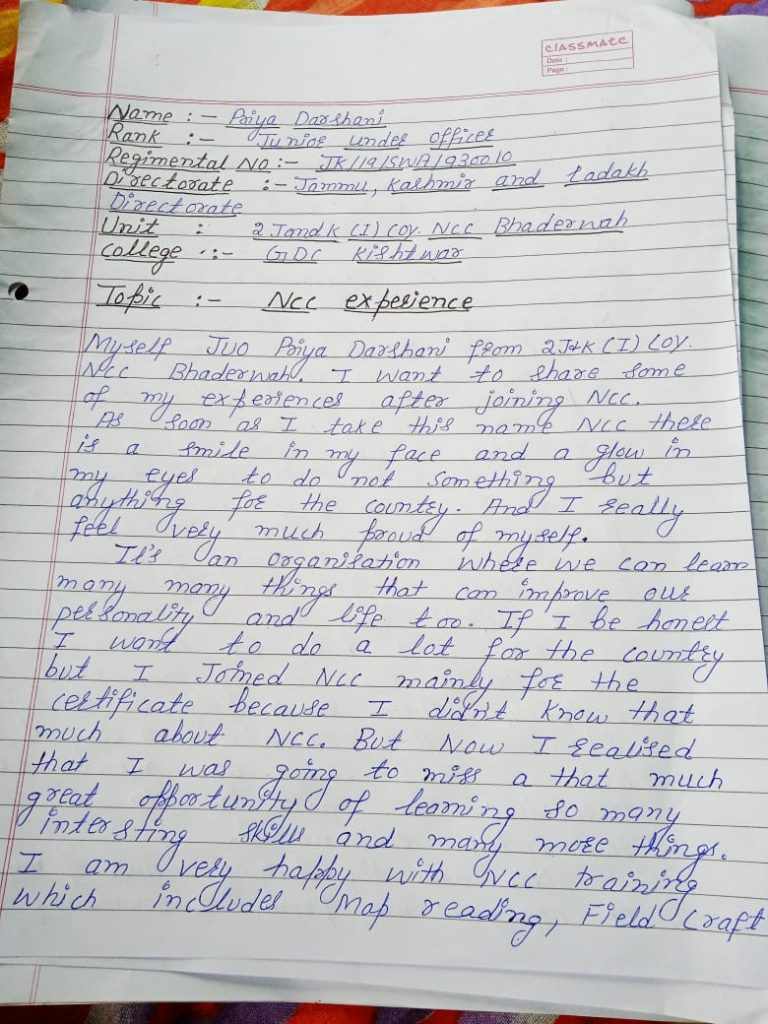 classmate
Date :
Page :
Name :- Priya Darshani
Rank :- Junior under officer
Regimental No :- JK/19/SWA/930010
Directorate :- Jammu, Kashmir and Ladakh
Directorate
Unit : 2 J and K (I) Coy. Ncc Bhaderwah
College :- GDC Kishtwar
Topic :- Ncc experience
Myself JUO Priya Darshani from 2J&K (I) Coy.
Ncc Bhaderwah. I want to share some
of my experiences after joining Ncc.
As soon as I take this name Ncc there
is a smile in my face and a glow in
my eyes to do not something but
anything for the country. And I really
feel very much proud of myself.
It's an organisation where we can learn
many many things that can improve our
personality and life too. If I be honest
I want to do a lot for the country
but I Joined Ncc mainly for the
certificate because I didn't know that
much about Ncc. But Now I realised
that I was going to miss a that much
great opportunity of learning so many
intersting skills and many more things.
I am very happy with Ncc training
which includes Map reading, Field Craft